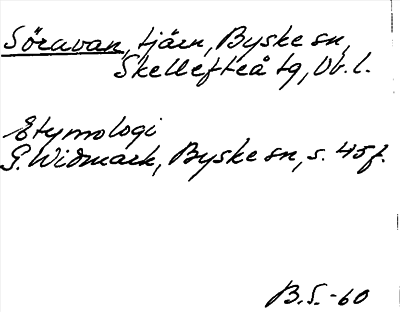 Söravan, tjärn, Byske sn,
Skellefteå tg, Vb. l.
Etymologi
G. Widmark, Byske sn, s. 45f.
B.S.-60